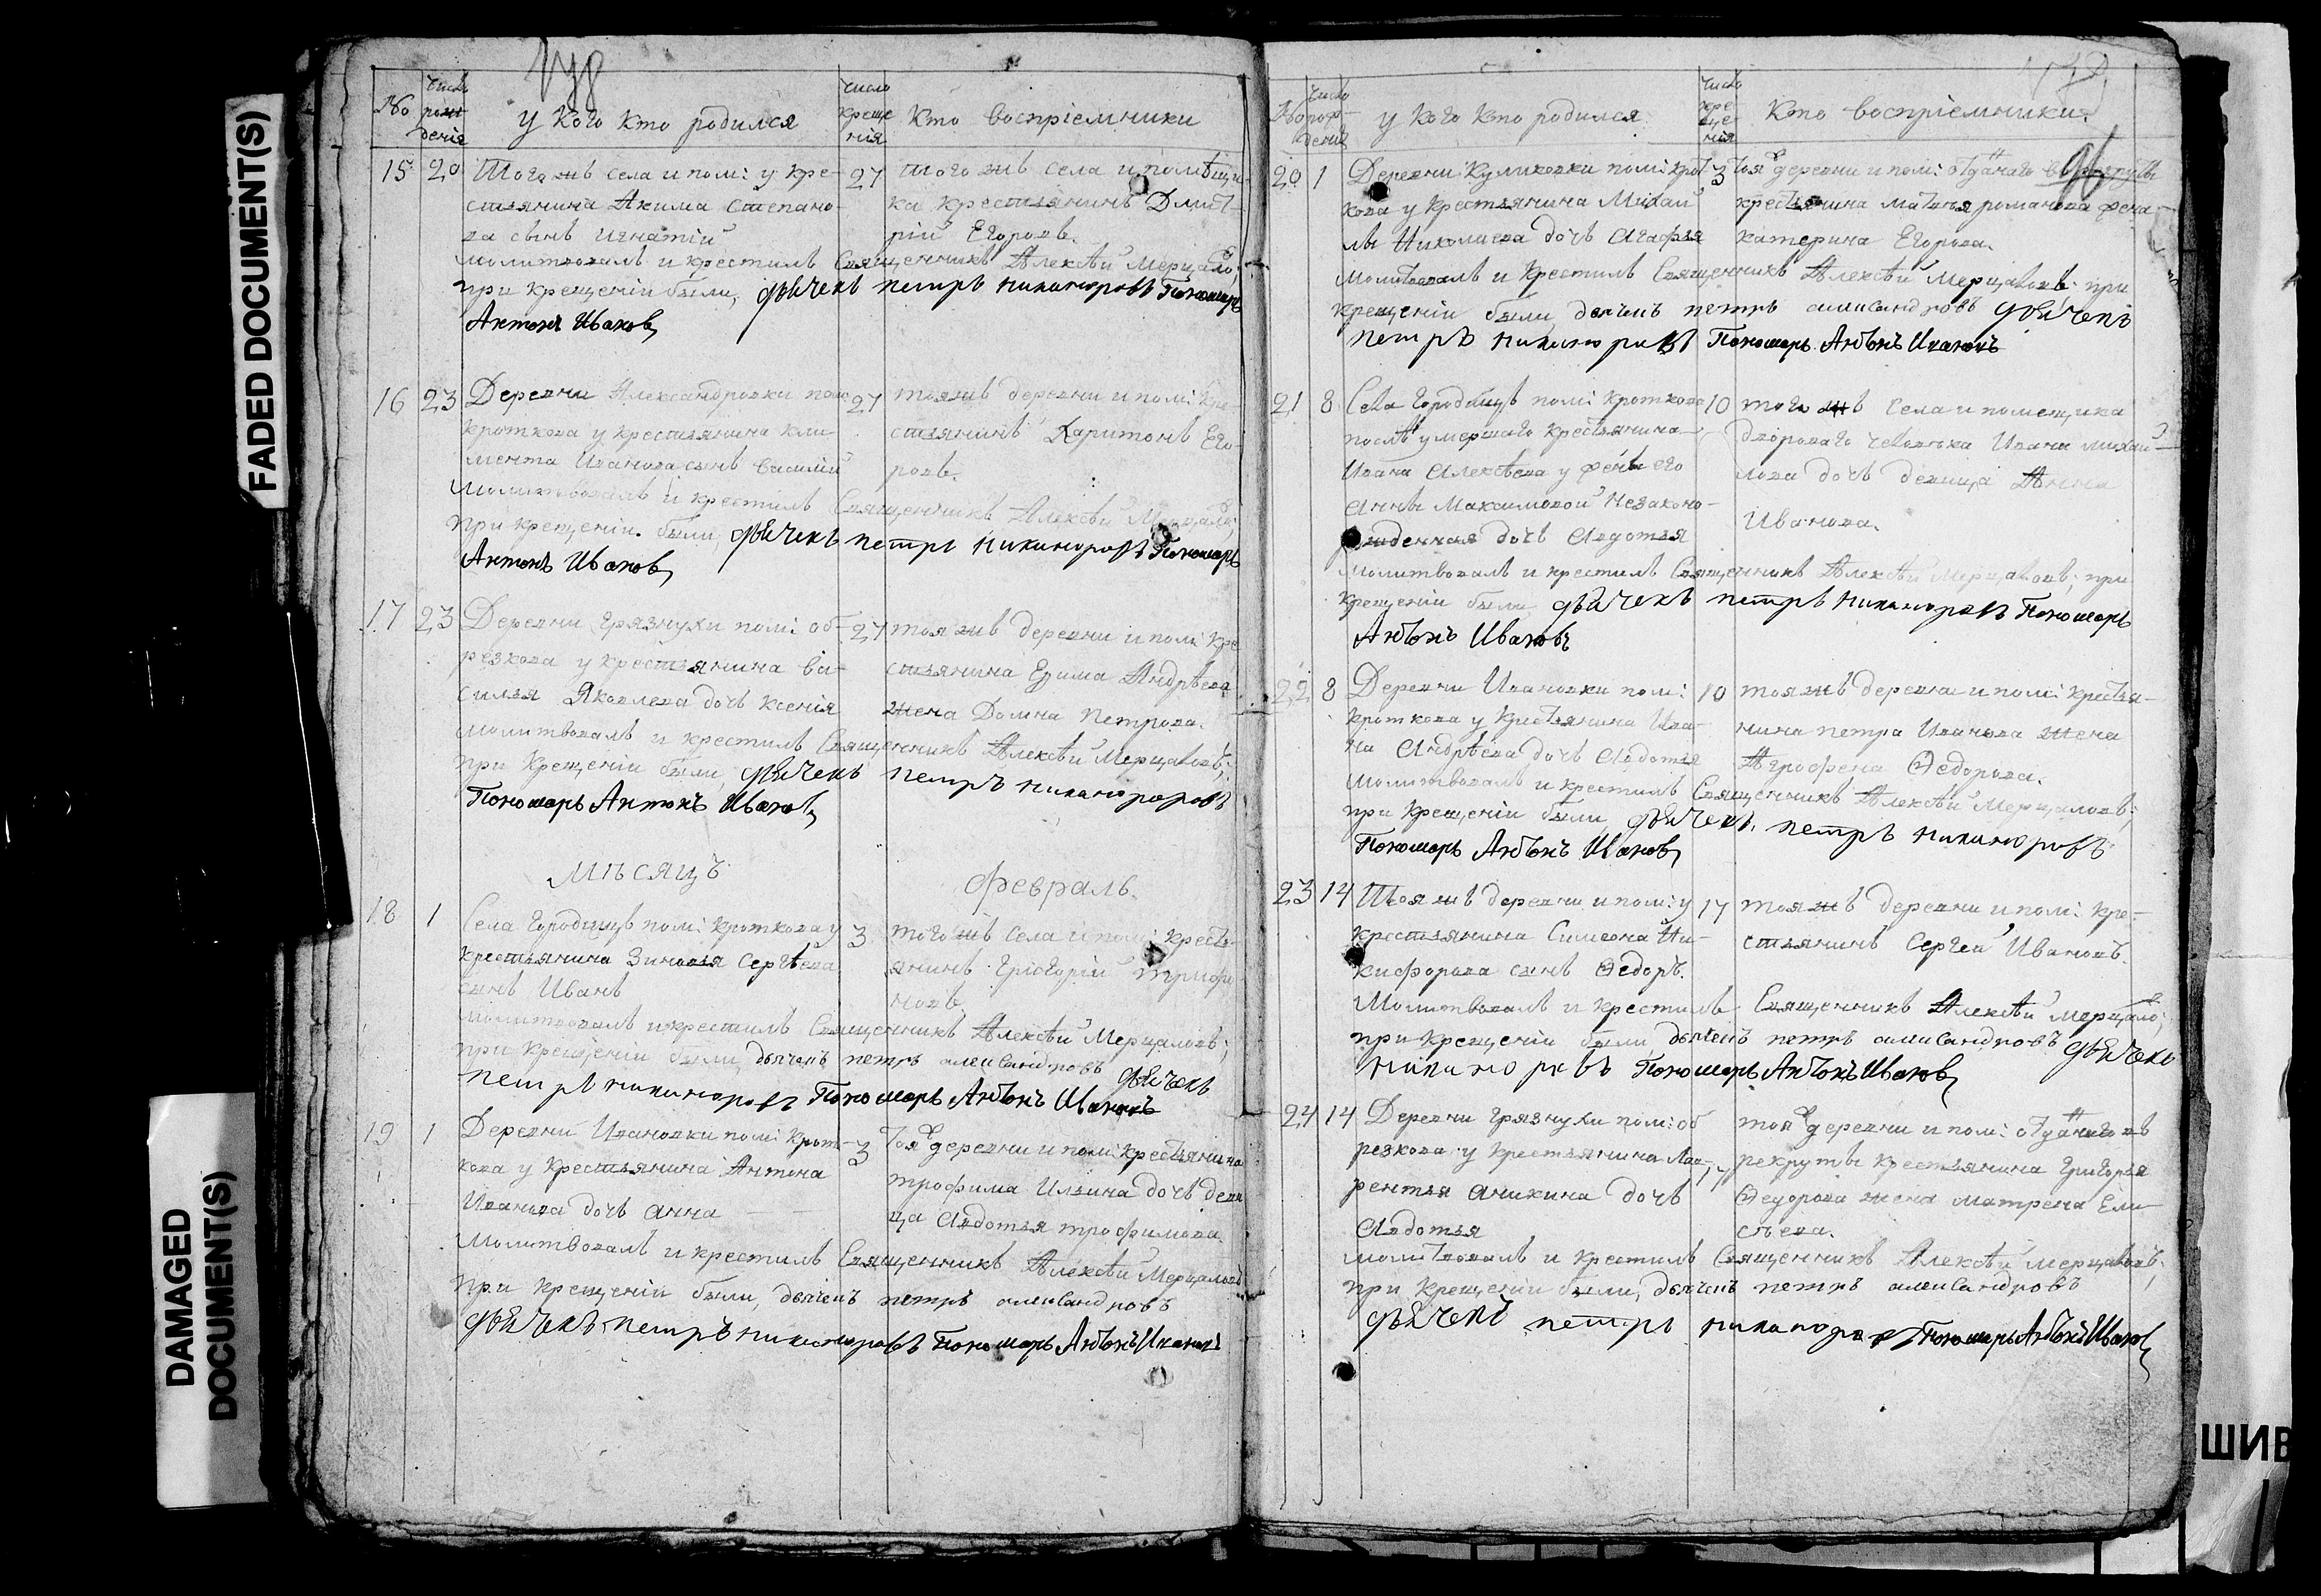 FADED DOCUMENT(S)
DAMAGED DOCUMENT(S)
№
число рождения
у кого кто родился
число крещения
кто воспріемники
15 20 Того жъ села и пом: у кре-
стьянина Акима Степано-
ва сынъ Игнатій
27 того жъ села и помѣщи-
ка крестьянинъ Дмит-
рій Егоровъ.
молитвовалъ и крестилъ Священникъ Алексѣй Мерцало;
при крещеніи были, дьячекъ петръ никаноровъ Пономарь
Антонъ Ивановъ
16 23 Деревни Александровки пом:
Кроткова у крестьянина Кли-
мента Иванова сынъ Василій
27 тояжъ деревни и пом: кре
стьянинъ Харитонъ Его
ровъ.
молитвовалъ и крестилъ Священникъ Алексѣй
при крещеніи были, дьячекъ петръ никаноровъ Пономарь
Антонъ Ивановъ
17 23 Деревни Грязнухи пом: Об-
резкова у крестьянина Ва-
силья Яковлева дочь Ксенія
27 тояжъ деревни и пом: кре
стьянина Ефима Андрѣева
жена Домна Петрова.
молитвовалъ и крестилъ Священникъ Алексѣй Мерцаловъ;
при крещеніи были, дьячекъ петръ никаноровъ
Пономарь Антонъ Ивановъ
мѣсяцъ февраль.
18 1 Села Городищъ пом: Кроткова у
крестьянина Зиновья Сергѣева
сынъ Иванъ
3 того жъ села и пом: кресть-
янинъ Григорій
новъ
молитвовалъ и крестилъ Священникъ Алексѣй Мерцаловъ;
при крещеніи были, дьячекъ петръ александровъ дьячекъ
петръ никаноровъ Пономарь Антонъ Ивановъ
19 1 Деревни Ивановки пом: Крот-
кова у крестьянина Антона
Иванова дочь Анна
3 Тояж деревни и пом: крестьянина
трофима Ильина дочь деви
ца Авдотья трофимова.
Молитвовалъ и крестилъ Священникъ Алексѣй Мерцаловъ
при крещеніи были, дьячекъ петръ александровъ
дьячекъ петръ никаноровъ Пономарь Антонъ Ивановъ
96
№
число рожденія
у кого кто родился
число крещенія
кто воспріемники.
20 1 Деревни Куликовки пом: Крот
кова у крестьянина Михай
лы Николаева дочь Агафья
3 Тояж деревни и пом: отданаго в рекруты
крестьянина Матвея романова жена
катерина Егорова.
молитвовалъ и крестилъ Священникъ Алексѣй Мерцаловъ; при
крещеніи были, дьячекъ петръ александровъ дьячекъ
петръ никаноровъ Пономарь Антонъ Ивановъ
21 8 Села Городищъ пом: Кроткова
послѣ умершаго крестьянина
Ивана Алексѣева у жены его
Анны Максимовой незаконо-
рожденная дочь Авдотья
10 того жъ села и помещика
дворового человѣка Ивана михай-
лова дочь девица Анна
Иванова.
молитвовалъ и крестилъ Священникъ Алексѣй Мерцаловъ; при
крещеніи были дьячекъ петръ никаноровъ Пономарь
Антонъ Ивановъ
22 8 Деревни Ивановки пом:
Кроткова у крестьянина Ива-
на Андрѣева дочь Авдотья
10 тояжъ деревни и пом: крестья-
нина петра Иванова жена
Агрофена Ѳедорова.
молитвовалъ и крестилъ Священникъ Алексѣй Мерцаловъ;
при крещеніи были, дьячекъ, петръ никаноровъ
Пономарь Антонъ Ивановъ
23 14 Тояжъ деревни и пом: у
крестьянина Симеона Ни-
кифорова сынъ Ѳедоръ.
17 тояжъ деревни и пом: кре-
стьянинъ Сергей Ивановъ.
Молитвовалъ и крестилъ Священникъ Алексѣй Мерцало;
при крещеніи были дьячекъ петръ александровъ дьячекъ
никаноровъ Пономарь Антонъ Ивановъ
24 14 Деревни Грязнухи пом: Об
резкова у крестьянина Лав-
рентья Аникина дочь
Авдотья
17 тояж деревни и пом: отданаго въ
рекруты крестьянина Григорья
Ѳедорова жена Матрена Ели
сѣева.
молитвовалъ и крестилъ Священникъ Алексѣй Мерцаловъ;
при крещеніи были, дьячекъ петръ александровъ
дьячекъ петръ никаноровъ Пономарь Антонъ Ивановъ
ШИВ